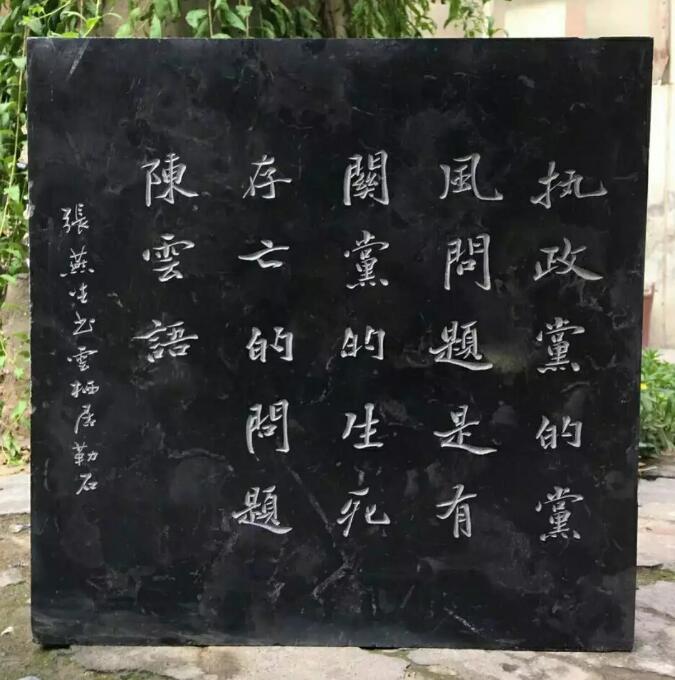 执政黨的黨
風問題是有
關黨的生死
存亡的問題
陳雲語
張燕生书雲栖居勒石